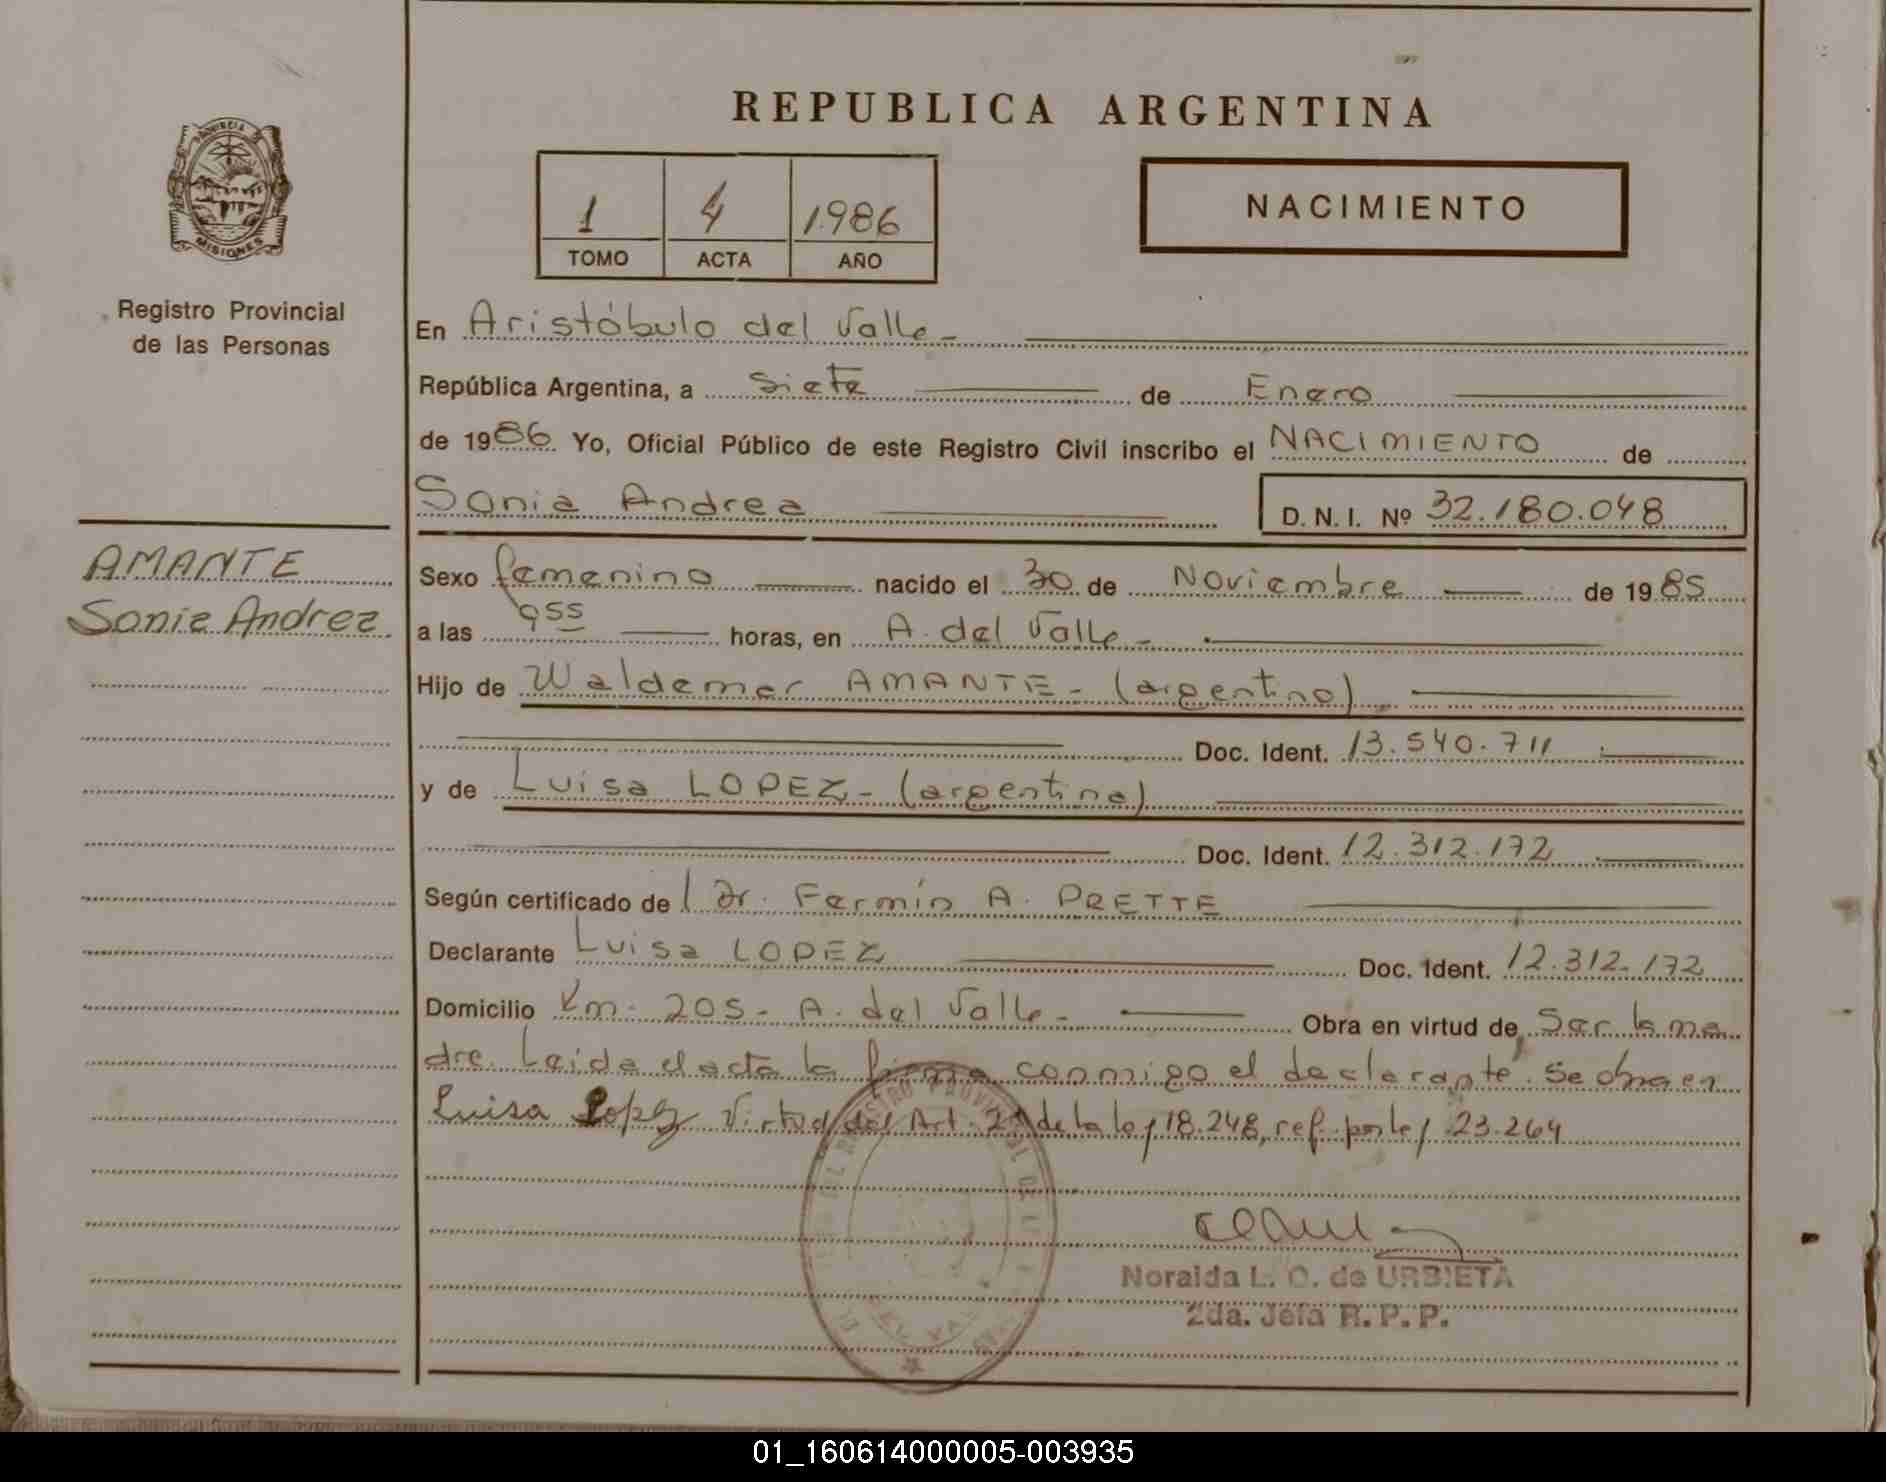 REPUBLICA ARGENTINA
PROVINCIA DE
MISIONES
1 4 1.986
TOMO ACTA AÑO
NACIMIENTO
Registro Provincial
de las Personas
En Aristóbulo del Valle -
República Argentina, a Siete de Enero
de 1986 Yo, Oficial Público de este Registro Civil inscribo el NACIMIENTO de
Sonia Andrea D. N. I. Nº 32.180.048
AMANTE
Sonia Andrea
Sexo femenino nacido el 30 de Noviembre de 1985
a las 955 horas, en A. del Valle -
Hijo de Waldemar AMANTE - (argentino)
Doc. Ident. 13.540.711
y de Luisa LOPEZ - (argentina)
Doc. Ident. 12.312.172
Según certificado de l Dr. Fermín A. PRETTE
Declarante Luisa LOPEZ Doc. Ident. 12.312.172
Domicilio Km. 205 - A. del Valle - Obra en virtud de Ser la ma
dre. Leida el acta la firma conmigo el declarante. Se obra en
Luisa Lopez Virtud del Art. 2º de la ley 18.248, ref. por ley 23.264
Noralda L. O. de URBIETA
2da. Jefa R. P. P.
01_160614000005-003935